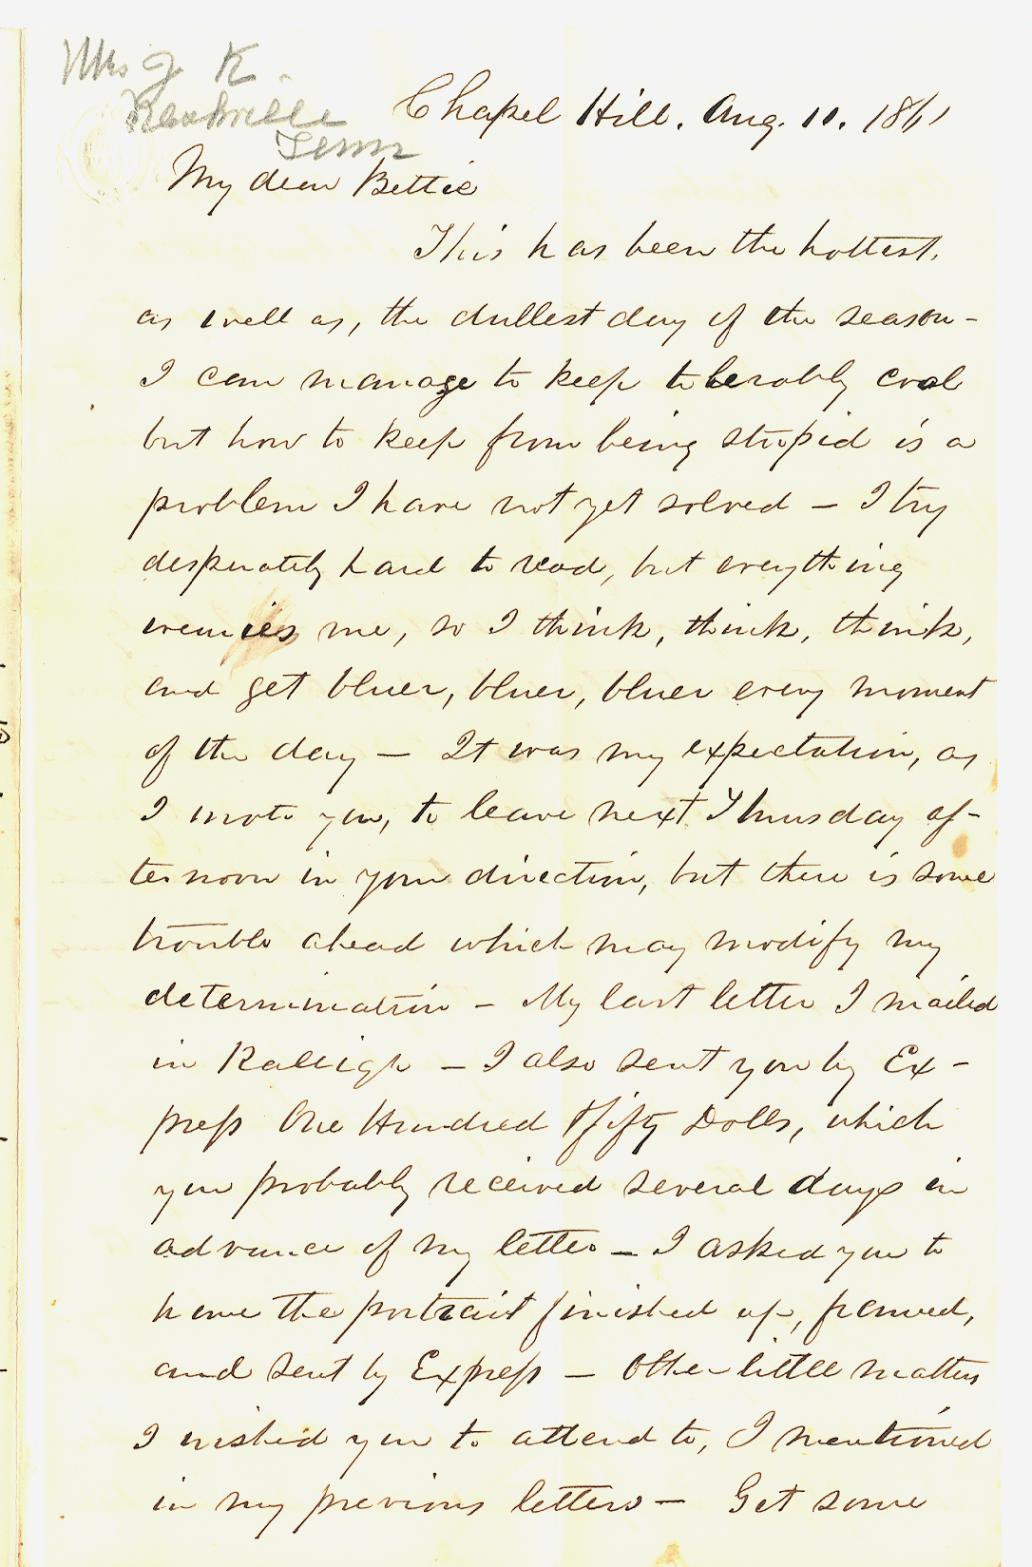 Mrs J K.
Nashville
Tenn
Chapel Hill. Aug. 11. 1861
My dear Bettie
This has been the hottest,
as well as, the dullest day of the season -
I can manage to keep tolerably cool
but how to keep from being stupid is a
problem I have not yet solved - I try
desperately hard to read, but everything
wearies me, so I think, think, think,
and get bluer, bluer, bluer every moment
of the day - It was my expectation, as
I wrote you, to leave next Thursday af-
ternoon in your direction, but there is some
trouble ahead which may modify my
determination - My last letter I mailed
in Raleigh - I also sent you by Ex-
press One Hundred & fifty Dolls, which
you probably received several days in
advance of my letter - I asked you to
have the portrait finished up, framed,
and sent by Express - Other little matters
I wished you to attend to, I mentioned
in my previous letters - Get some